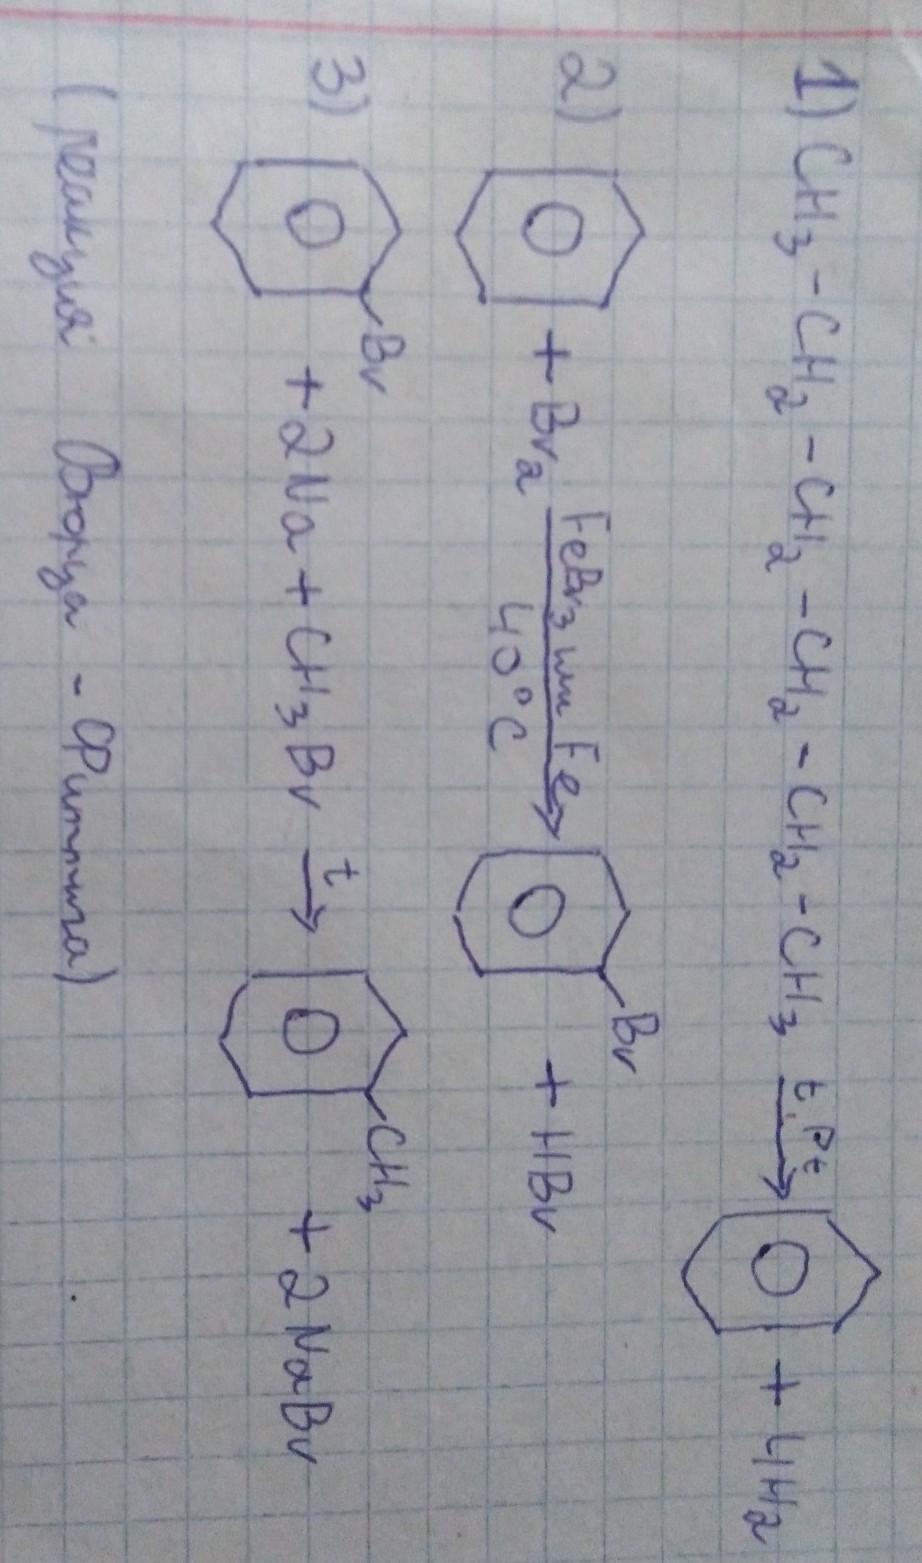 1) CH3 - CH2 - CH2 - CH2 - CH2 - CH3 t, Pt → + 4H2
2) + Br2 FeBr3 или Fe → 40°C Br + HBr
3) Br + 2Na + CH3Br t → CH3 + 2NaBr
(реакция Вюрца - Фиттига)